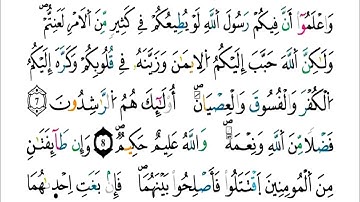 وَاعْلَمُوٓا۟ أَنَّ فِيكُمْ رَسُولَ اللَّهِ لَوْ يُطِيعُكُمْ فِي كَثِيرٍ مِّنَ الْأَمْرِ لَعَنِتُّمْ
وَلَٰكِنَّ اللَّهَ حَبَّبَ إِلَيْكُمُ الْإِيمَٰنَ وَزَيَّنَهُۥ فِي قُلُوبِكُمْ وَكَرَّهَ إِلَيْكُمُ
الْكُفْرَ وَالْفُسُوقَ وَالْعِصْيَانَ أُو۟لَٰٓئِكَ هُمُ الرَّٰشِدُونَ 7
فَضْلًا مِّنَ اللَّهِ وَنِعْمَةً وَاللَّهُ عَلِيمٌ حَكِيمٌ 8 وَإِن طَآئِفَتَانِ
مِنَ الْمُؤْمِنِينَ اقْتَتَلُوا۟ فَأَصْلِحُوا۟ بَيْنَهُمَا فَإِنۢ بَغَتْ إِحْدَىٰهُمَا